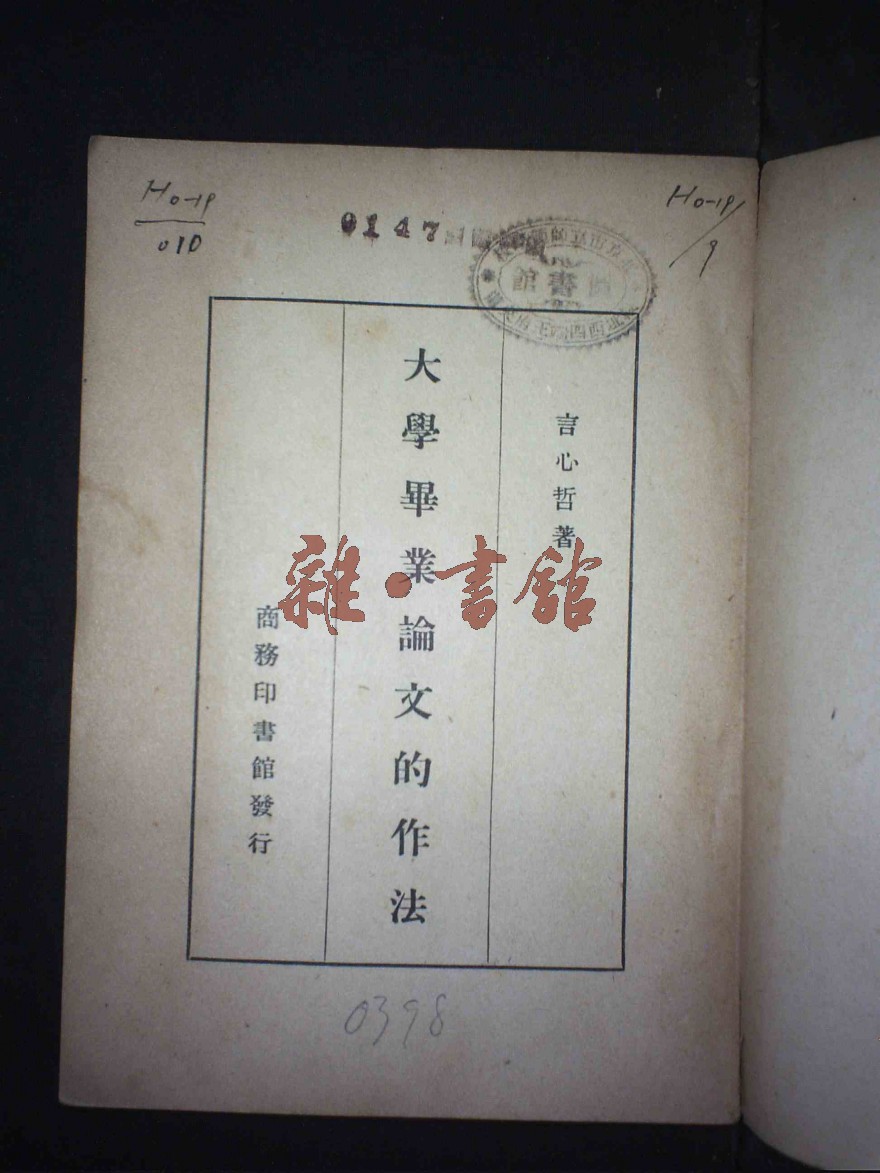 Ho-19
010
0147
Ho-19/9
圖書館
言心哲著
大學畢業論文的作法
商務印書館發行
雜·書館
0398